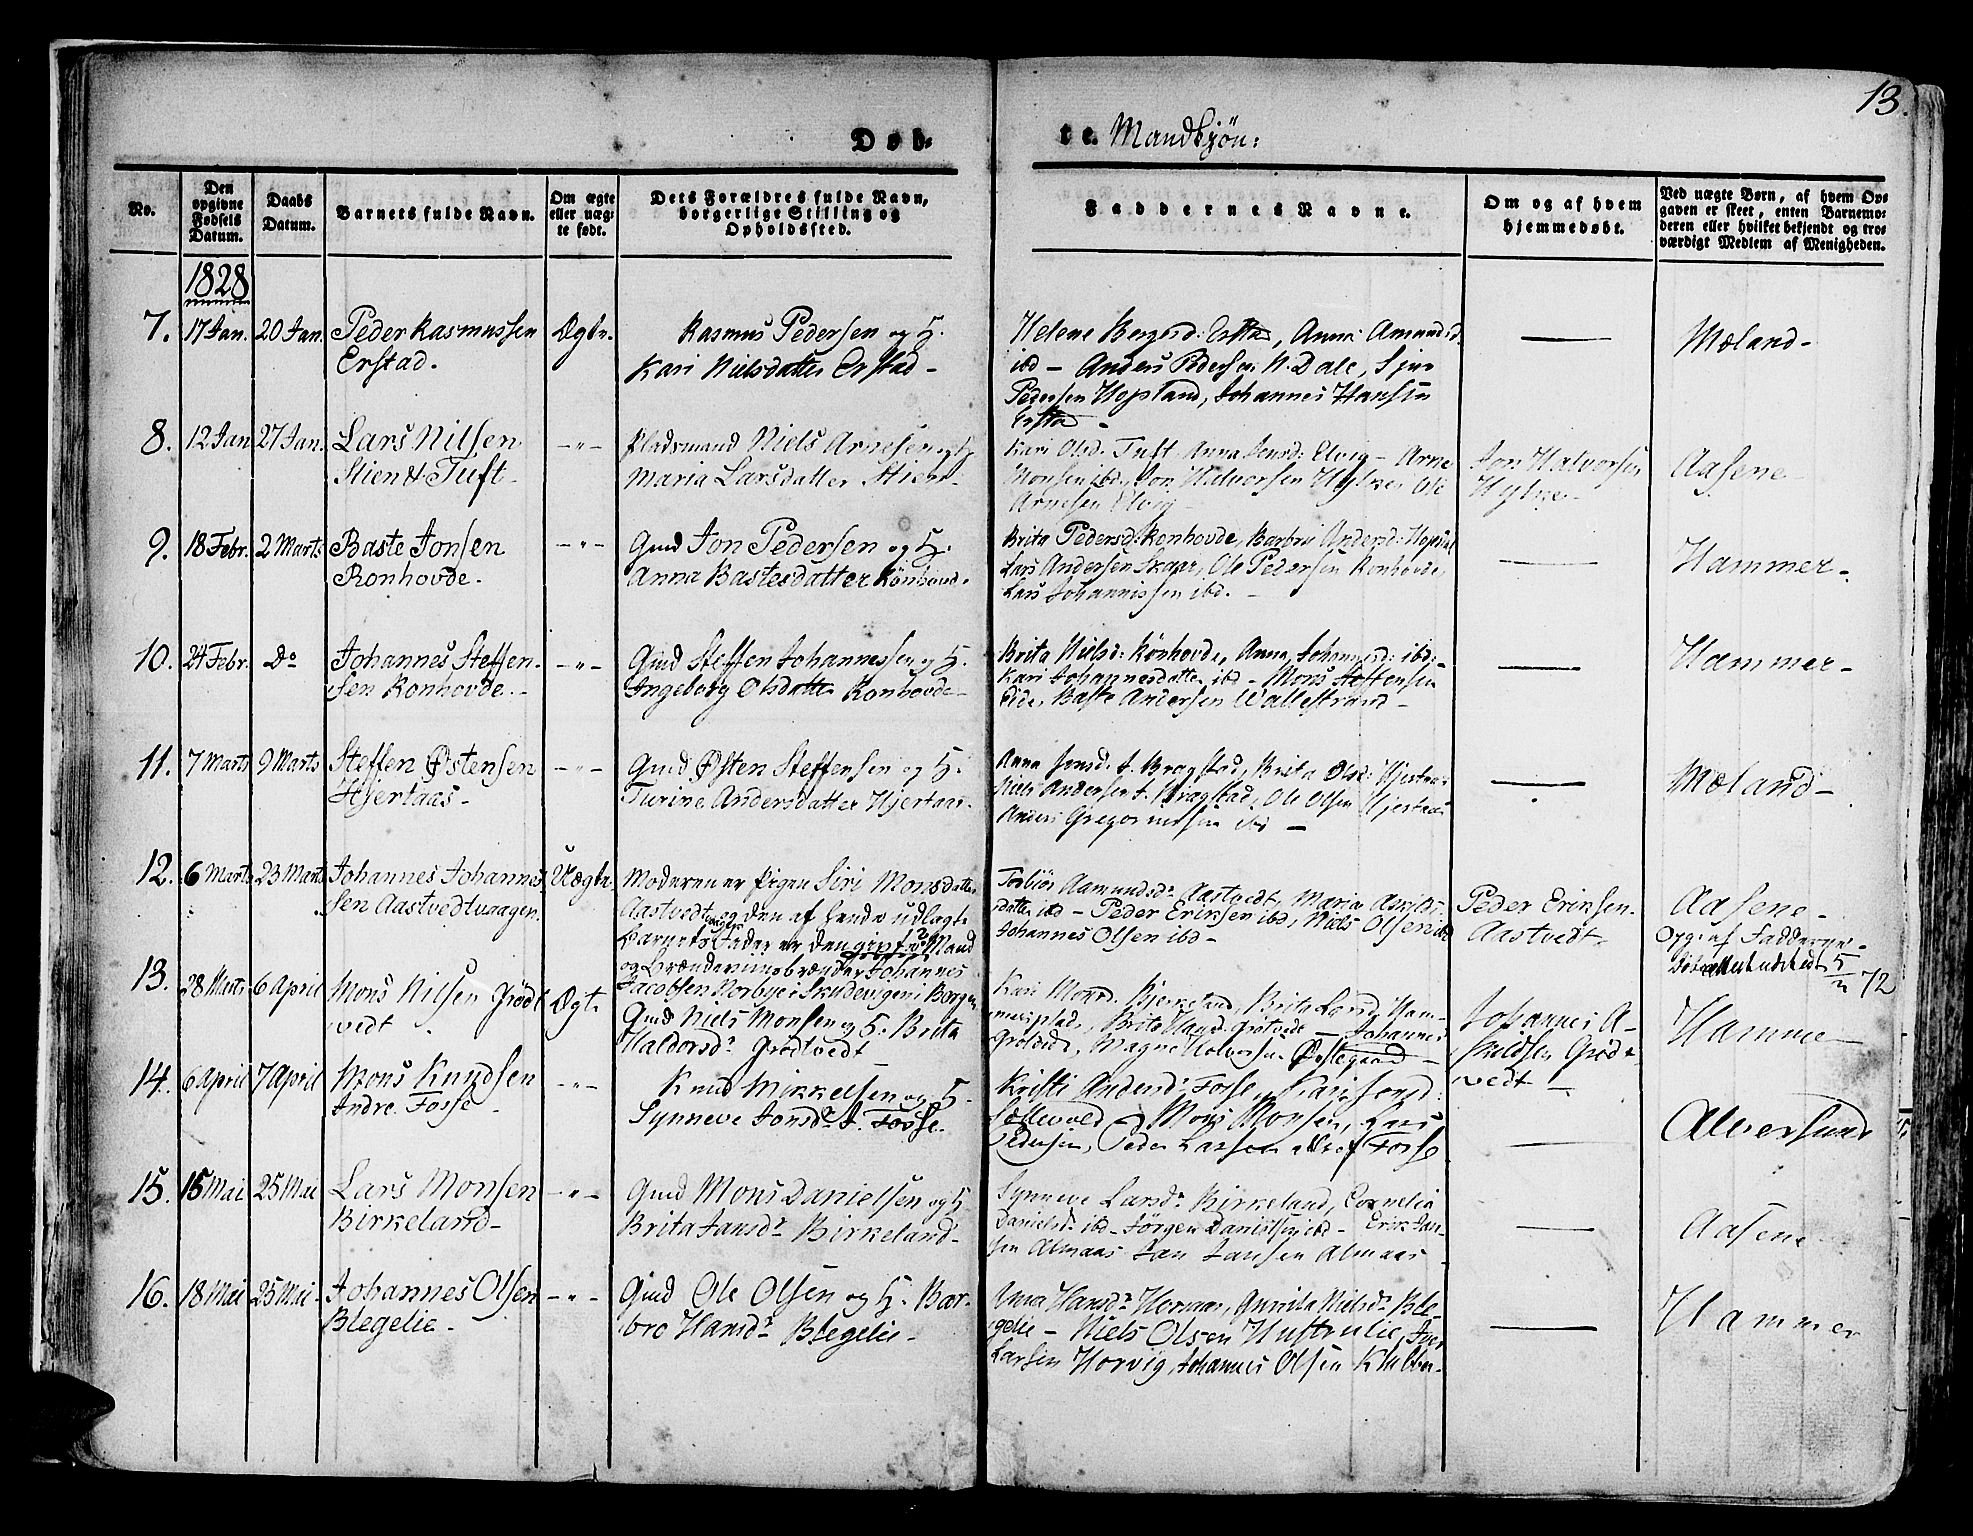 13.
Døb-
te. Mandkjøn:
No.
Den opgivne Fødsels Datum.
Daabs Datum.
Barnets fulde Navn.
Om ægte eller uægte født.
Dets Forældres fulde Navn, borgerlige Stilling og Opholdsfted.
Faddernes Navne.
Om og af hvem hjemmedøbt.
Ved uægte Børn, af hvem Opgaven er skeet, enten Barnemoderen eller hvilket bekjendt og troværdigt Medlem af Menigheden.
1828
7. 17 Jan. 20 Jan. Peder Rasmussen
Erstad.
Ægte.
Rasmus Pedersen og H.
Kari Nielsdatter Erstad -
Helene Bergesd: Erstad, Anna Amundsd.
ibd - Anders Pedersen N. Dale, Sjur
Pedersen Hopland, Johannes Hansen
Erstad -
Mæland -
8. 12 Jan 27 Jan. Lars Nilsen
Stien & Tuft -
-"-
Pladsmand Niels Arnesen og H
Maria Larsdatter Stien -
Kari Olsd. Tuft. Anna Jensd: Elvig - Arne
Monsen ibd, Jon Halvorsen Hylke, Ole
Arnesen Elvig
Jon Halvorsen
Hylke -
Aasene
9. 18 Febr. 2 Marts Baste Jonsen
Ronhovde.
-"-
Gmd Jon Pedersen og H:
Anna Bastesdatter Rönhovde
Brita Pedersd: Ronhovde, Barbru Andersd:
Lars Andersen Skaar, Ole Pedersen Ronhovde
Lars Johannissen ibd. -
Hammer -
10. 24 Febr. Do Johannes Steffen-
sen Ronhovde. -
-"-
Gmd Steffen Johannessen og H.
Ingeborg Olsdatter Ronhovde -
Brita Nielsd: Rönhovde, Anna Johannesd: ibd: -
Kari Johannesdatter ibd - Mons Steffensen
Eide, Baste Andersen Wallestrand -
Hammer -
11. 7 Marts 9 Marts Steffen Østensen
Hjertaas -
-"-
Gmd Østen Steffensen og H.
Turine Andersdatter Hjertaas -
Anna Jonsd. I. Brogstad, Brita Olsd: Hjertaas
Niels Andersen I. Brogstad, Ole Olsen Hjertaas
Anders Gregoriussen ibd -
Mæland -
12. 6 Marts 23 Marts Johannes Johannes
sen Aastvedtvaagen.
Uægte.
Moderen er Pigen Siri Monsdatter
Aastvedtvaagen og den af hende udlagte
Barnets Fader er den gifte Mand
og Brændeviinsbrænder Johannes
Jacobsen Norbye i Skudevigen i Bergen
Torbiör Aamundsdr Aastvedt, Maria Askilds
datter ibd - Peder Eriksen ibd, Niels Olsen ibd
Johannes Olsen ibd -
Peder Eriksen
Aastvedt,
Aasene -
Opg. af Fadderne -
Døbeattest udstedt 5/2 72
13. 28 Marts 6 April Mons Nilsen Grødt
vedt
Ægte
Gmd Niels Monsen og H: Brita
Haldorsdr Grødtvedt -
Kari Monsd. Bjerkeland, Brita Larsd Ham-
merstad, Brita Hansd. Grötvedt - Johannes
Grötvedt, Magne Halvorsen Østegaard -
Johannes A-
skildsen Grødt
vedt -
Hammer
14. 6 April 7 April Mons Knudsen
Indre Fosse -
-"-
Knud Mikkelsen og H.
Synneve Jonsdr I. Fosse.
Kristi Andersdr Fosse, Kari Jonsd:
Sællevold, Mons Monsen, Lars
Pedersen, Peder Larsen alle af Fosse
Alversund
15. 15 Mai 25 Mai Lars Monsen
Birkeland -
-"-
Gmd Mons Danielsen og H
Brita Jansdr Birkeland -
Synneve Larsdr Birkeland, Cornelia
Danielsdr ibd - Jørgen Danielsen ibd - Erik Jan-
sen Almaas Jan Jansen Almaas
Aasene
16. 18 Mai 25 Mai - Johannes Olsen
Blegelie -
-"-
Gmd Ole Olsen og H. Bar-
bro Hansdr Blegelie -
Anna Hansdr Hermaas, Gunilda Nielsdr Ble
gelie - Niels Olsen Hustrulie, Iver
Larsen Horvig, Johannes Olsen
Hammer